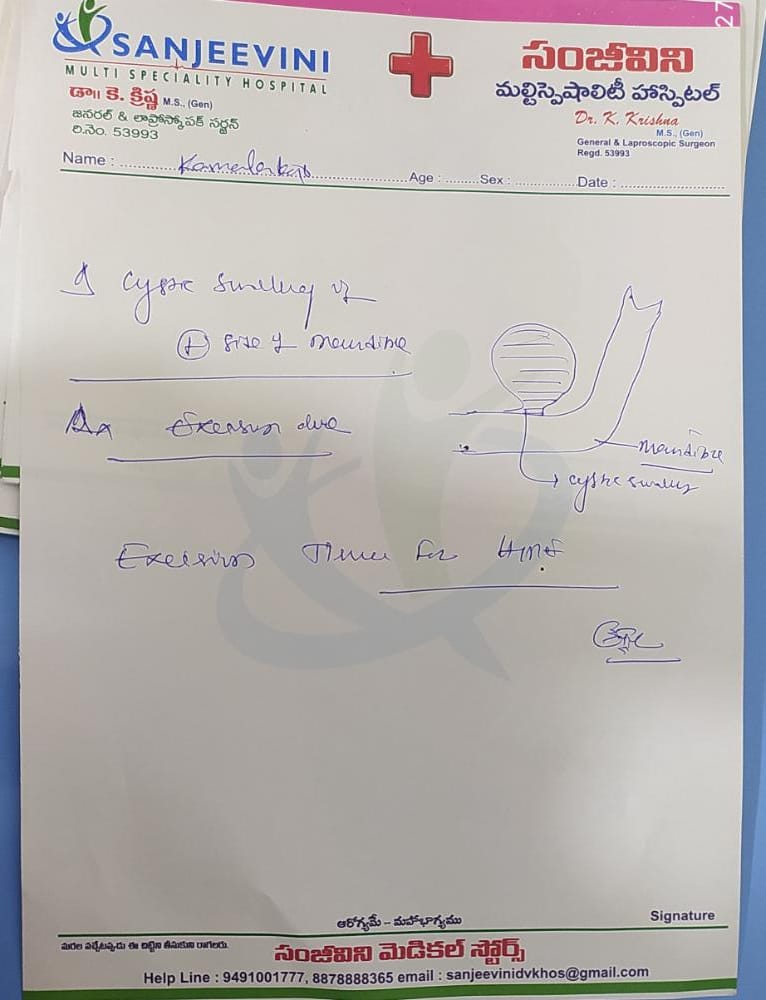 27
SANJEEVINI
MULTI SPECIALITY HOSPITAL
డా॥ కె. క్రిష్ణ M.S., (Gen)
జనరల్ & లాప్రోస్కోపిక్ సర్జన్
రి.నెం. 53993
సంజీవిని
మల్టిస్పెషాలిటీ హాస్పిటల్
Dr. K. Krishna
M.S., (Gen)
General & Laproscopic Surgeon
Regd. 53993
Name : Age : Sex : Date :
cystic swelling of
side of mandible
Excision done
mandible
cystic swelling
Excision for
ఆరోగ్యమే – మహాభాగ్యము
Signature
మరల వచ్చేటప్పుడు ఈ చిట్టిని తీసుకుని రాగలరు.
సంజీవిని మెడికల్ స్టోర్స్
Help Line : 9491001777, 8878888365 email : sanjeevinidvkhos@gmail.com